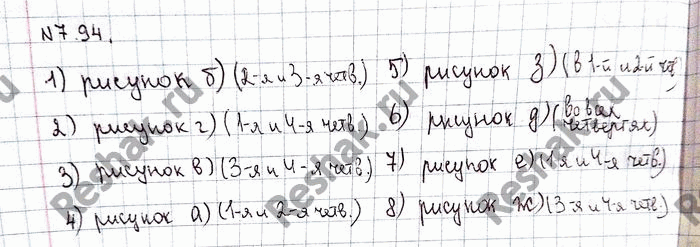 №7.94.
1) рисунок б) (2-я и 3-я четв.)
2) рисунок г) (1-я и 4-я четв.)
3) рисунок в) (3-я и 4-я четв.)
4) рисунок а) (1-я и 2-я четв.)
5) рисунок з) (в 1-й и 2-й чет)
6) рисунок д) (во всех четвертях)
7) рисунок е) (1я и 4-я четв.)
8) рисунок ж) (3-я и 4-я четв.)
Reshak.ru
Reshak.ru
Reshak.ru